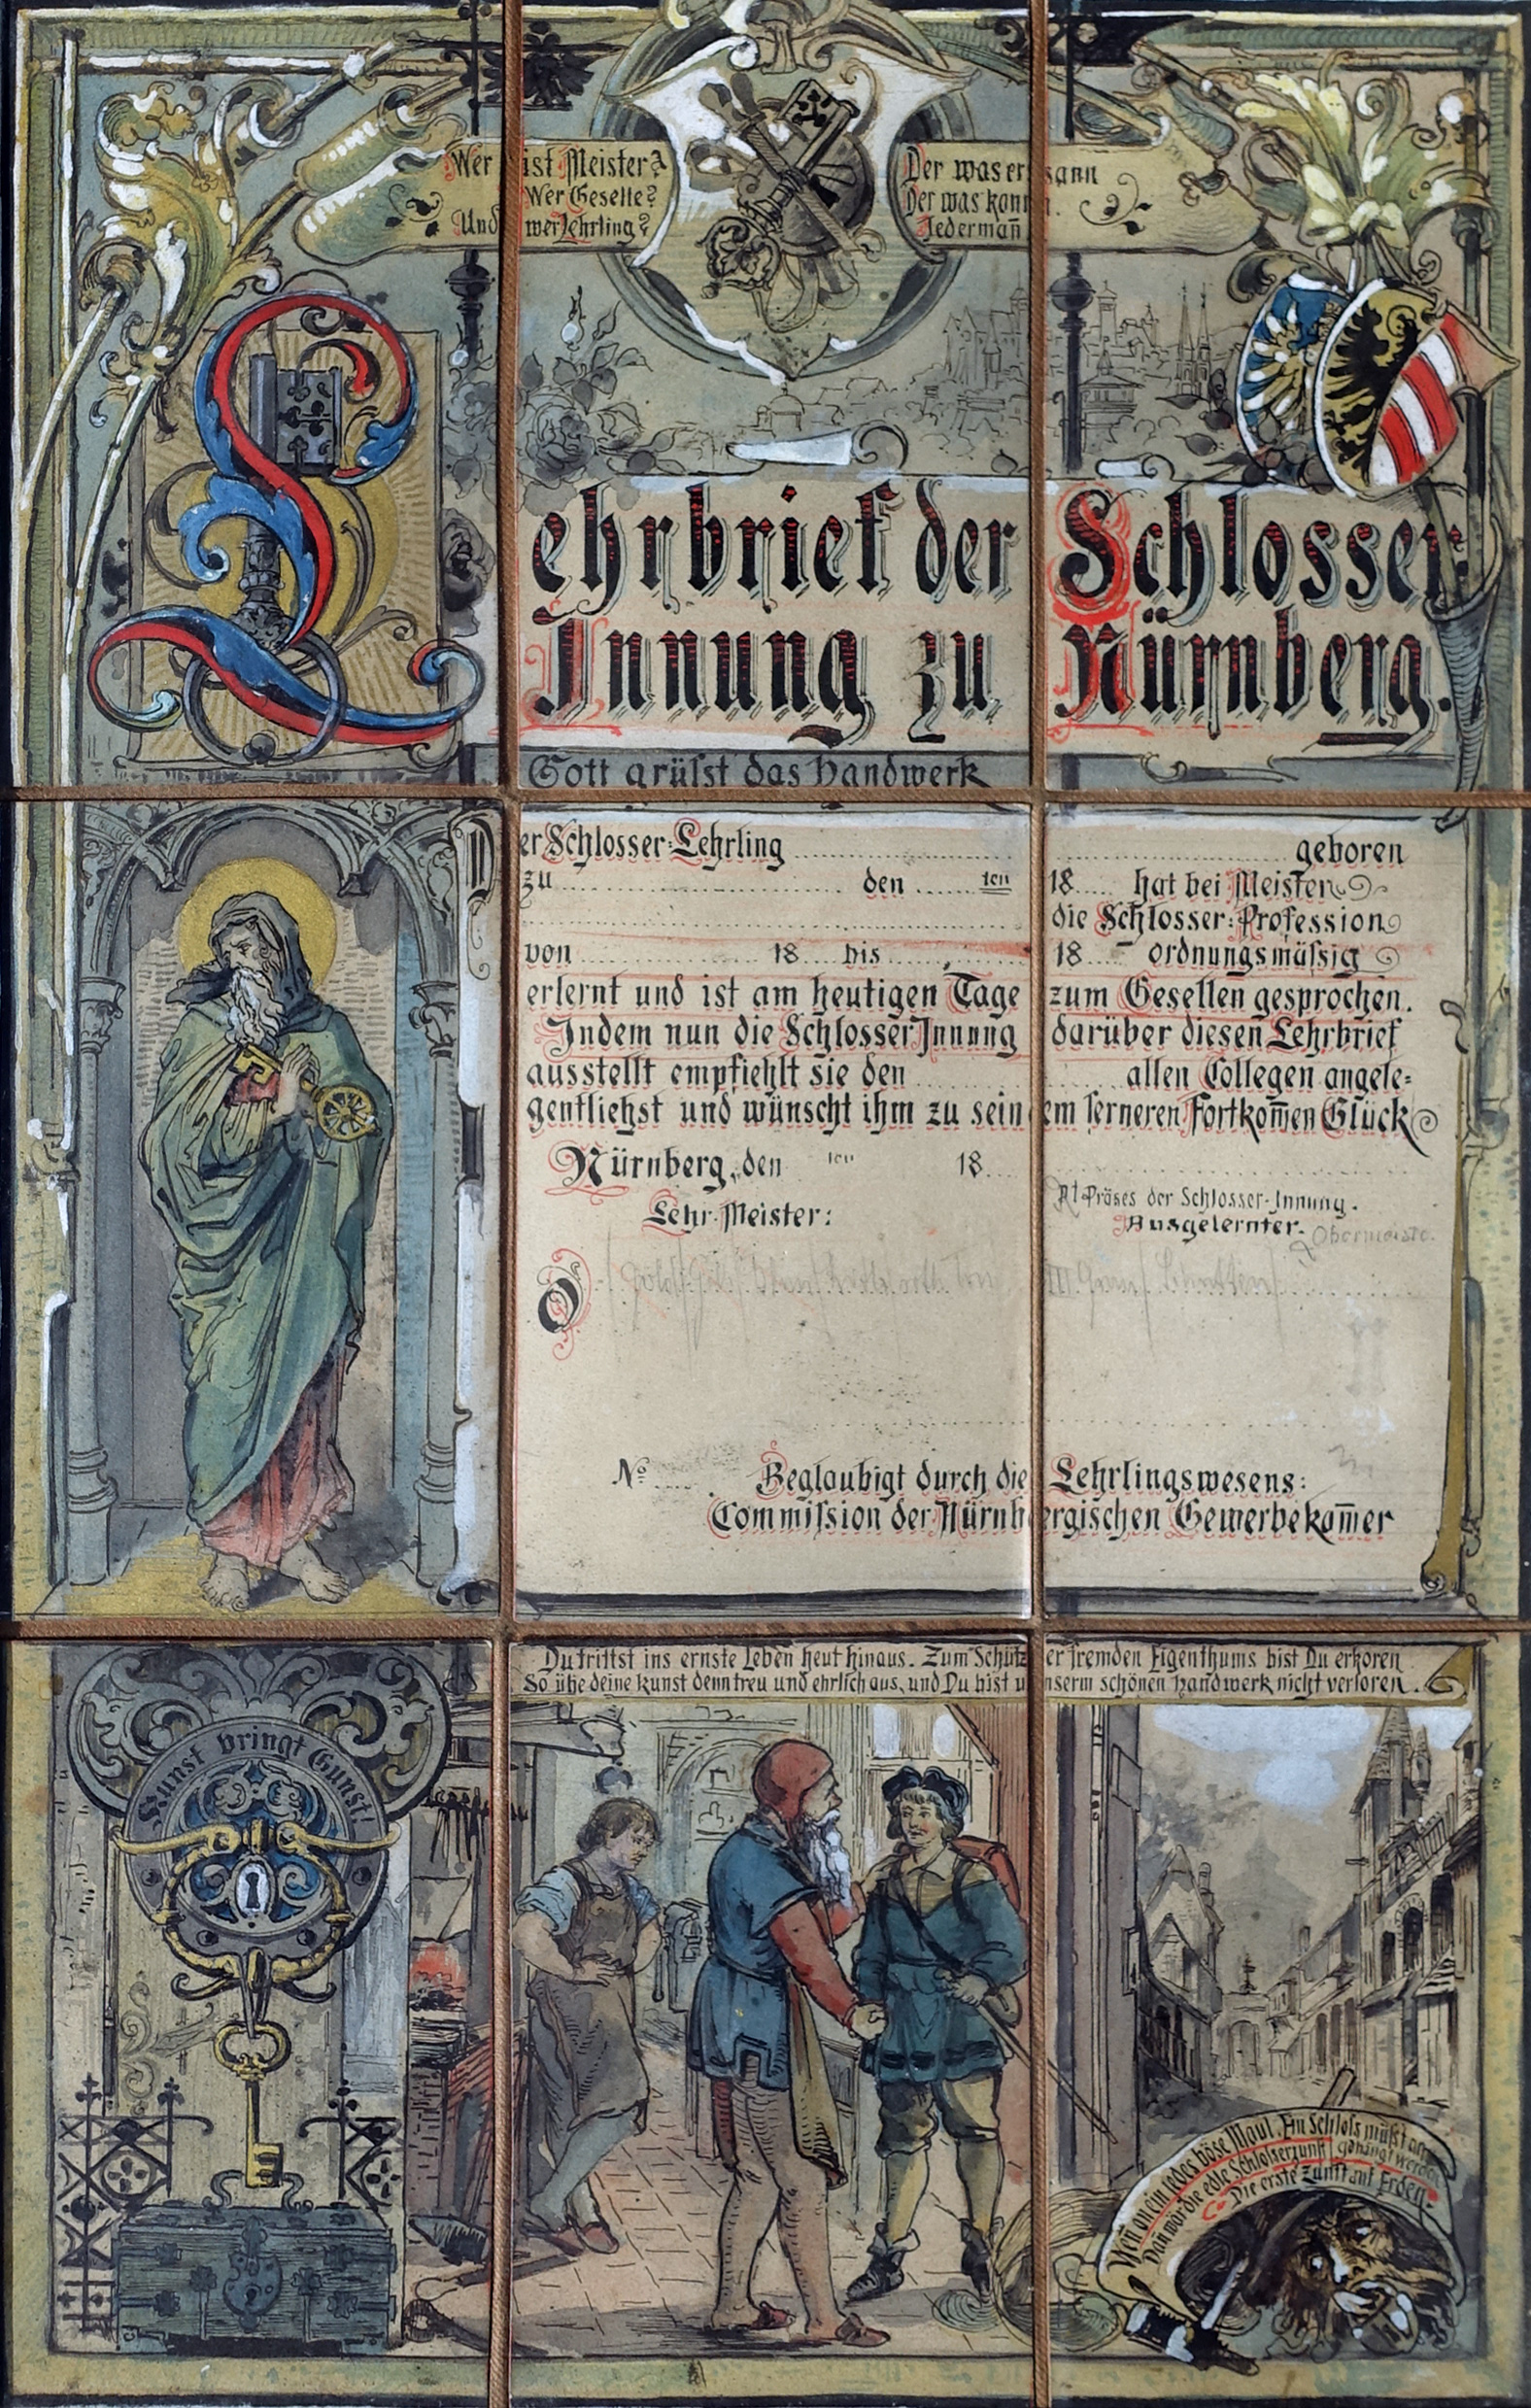 Wer ist Meister? Der was ersann
Wer Geselle? Der was konn
Und wer Lehrling? Jedermañ
Lehrbrief der Schlosser
Innung zu Nürnberg.
Gott grüſst das Handwerk
Der Schlosser-Lehrling geboren
zu den ten 18 hat bei Meister
die Schlosser-Profession
von 18 bis 18 ordnungsmäſsig
erlernt und ist am heutigen Tage zum Gesellen gesprochen.
Indem nun die Schlosser Innung darüber diesen Lehrbrief
ausstellt empfiehlt sie den allen Collegen angele-
gentliehst und wünscht ihm zu seinem ferneren Fortkom̄en Glück
Nürnberg, den ten 18
Präses der Schlosser-Innung.
Lehr-Meister: Ausgelernter. Obermeiste
No Beglaubigt durch die Lehrlingswesens:
Commiſsion der Nürnbergischen Gewerbekam̄er
Du trittst ins ernste Leben heut hinaus. Zum Schützer fremden Eigenthums bist Du erkoren
So übe deine Kunst denn treu und ehrlich aus, und Du bist unserm schönen Handwerk nicht verloren.
Kunst bringt Gunst!
Wen̄ an ein jedes böse Maul. Ein Schloſs müſst an
gehängt werden
Dan̄ wär die edle Schlosserzunft
Die erste Zunft auf Erden